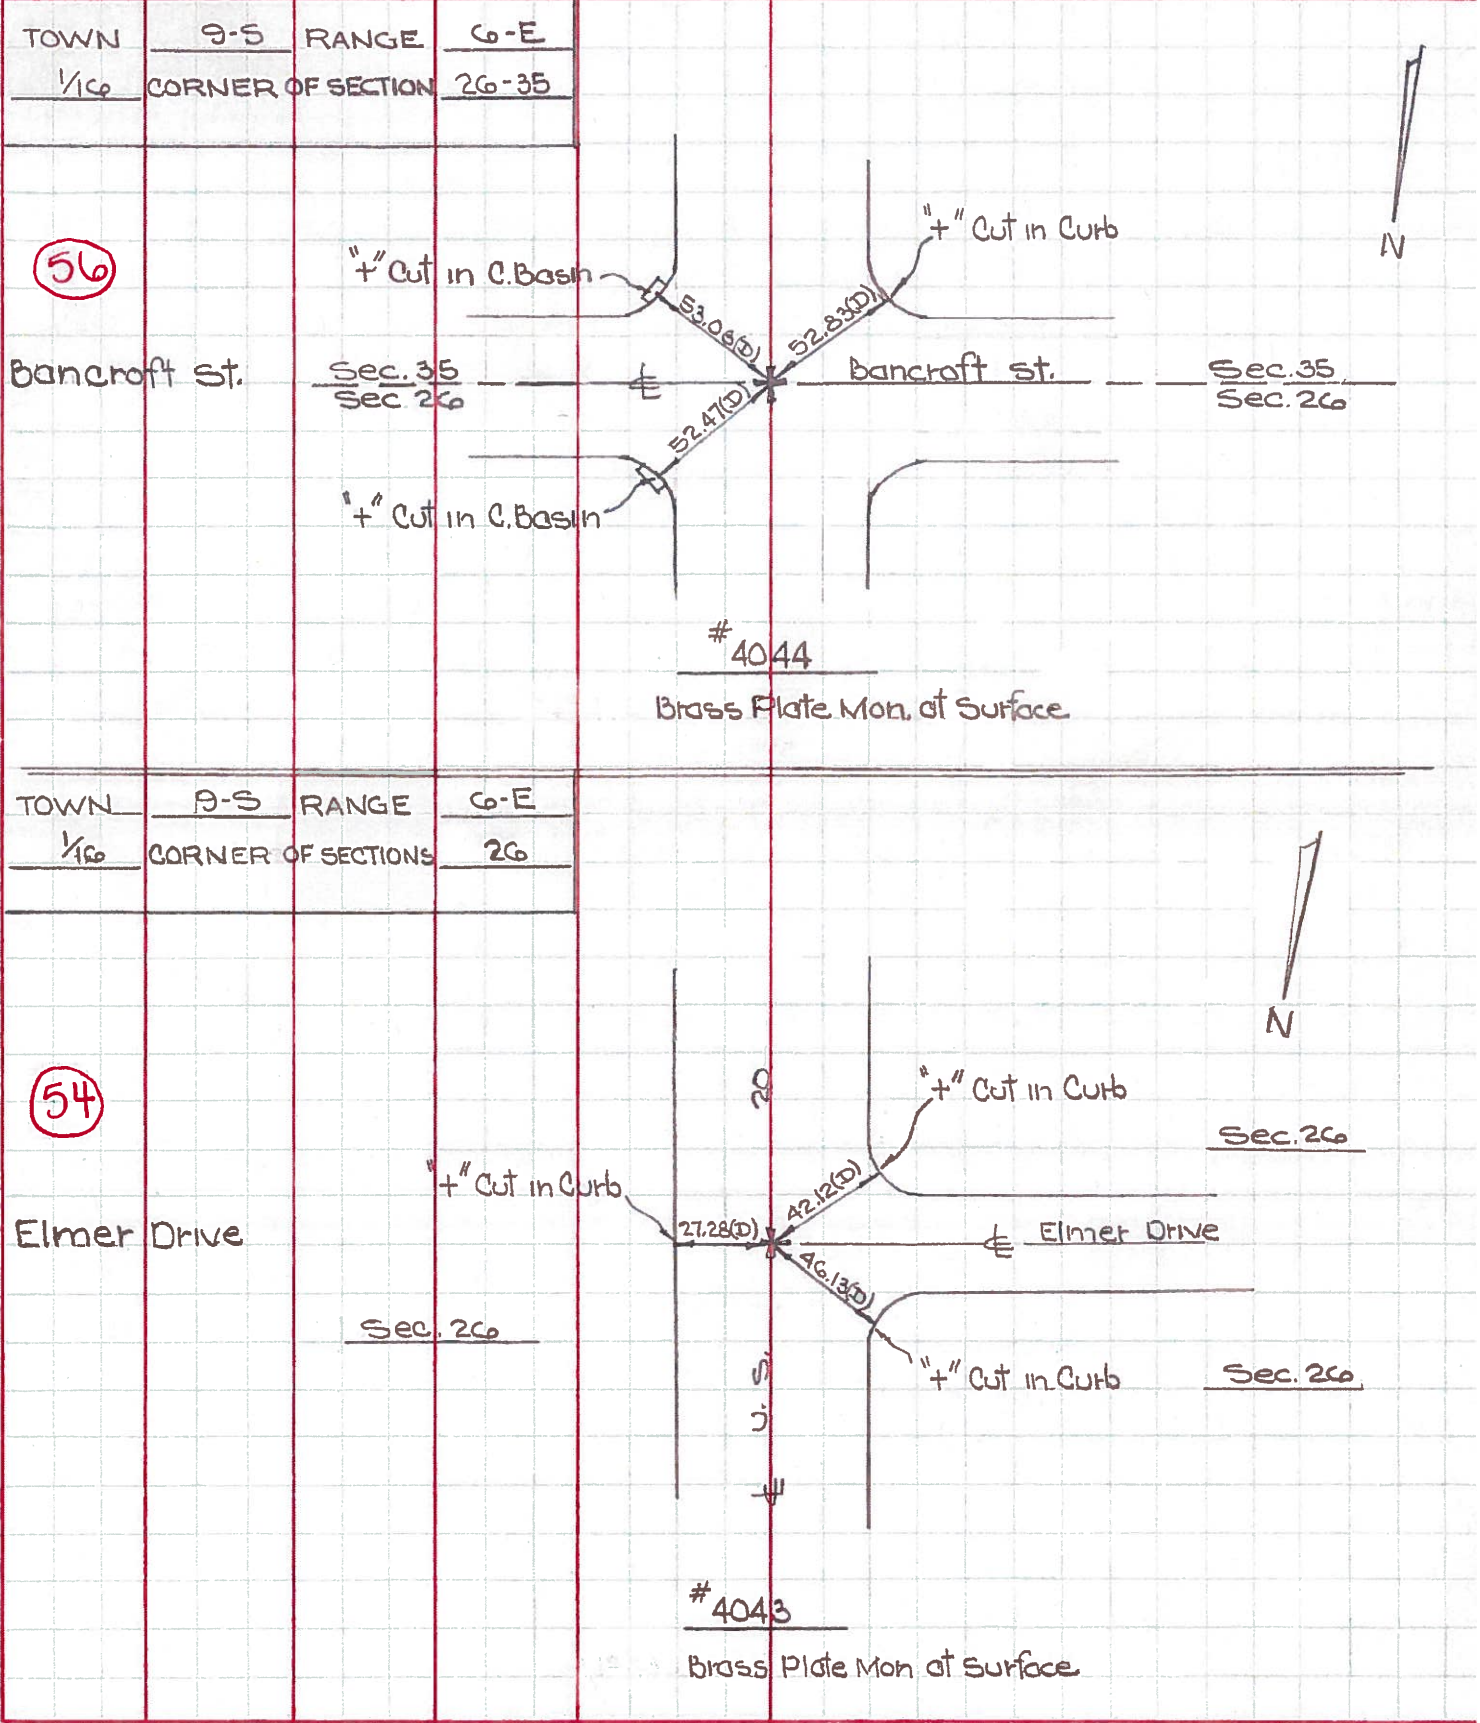 TOWN 9-S RANGE 6-E
1/16 CORNER OF SECTION 26-35
N
56
"+" Cut in Curb
"+" Cut in C.Basin
53.08(D)
52.83(D)
Bancroft St.
Sec. 35
Sec. 26
℄
Bancroft St.
Sec. 35
Sec. 26
52.47(D)
"+" Cut in C.Basin
#4044
Brass Plate Mon. at Surface
TOWN 9-S RANGE 6-E
1/16 CORNER OF SECTIONS 26
N
54
20
"+" Cut in Curb
Sec. 26
"+" Cut in Curb
42.12(D)
27.28(D)
Elmer Drive
℄ Elmer Drive
46.13(D)
Sec. 26
"+" Cut in Curb
Sec. 26
℄ U.S.
#4043
Brass Plate Mon at Surface